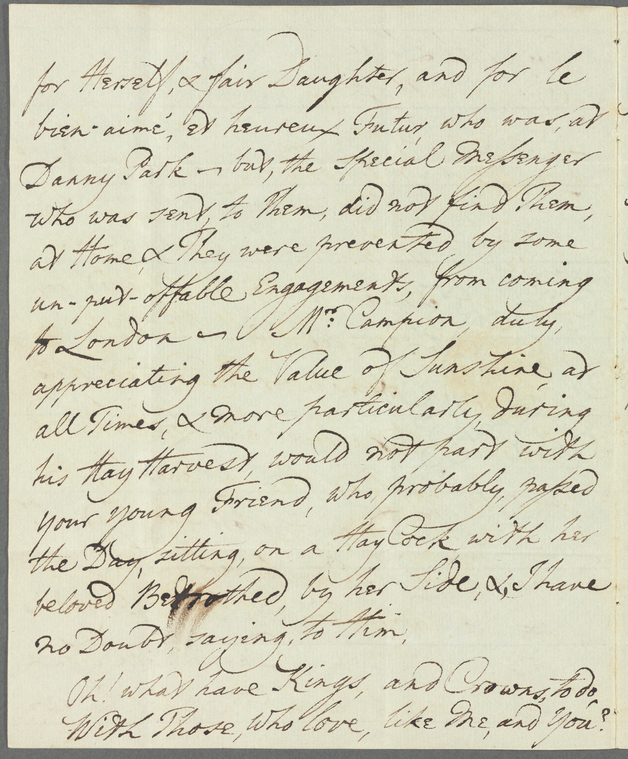 for Herself, & fair Daughter, and for le
bien-aimé, et heureux Futur, who was, at
Danny Park — but, the Special Messenger
who was sent, to Them, did not find Them,
at Home, & They were prevented, by some
un-put-offable Engagements, from coming
to London — Mr. Campion, duly,
appreciating the Value of Sunshine, at
all Times, & more particularly, during
his Hay Harvest, would not part with
your young Friend, who probably, passed
the Day, sitting, on a Hay Cock with her
beloved Betrothed, by her Side, &, I have
no Doubt, saying, to Him,
Oh! what have Kings, and Crowns, to do,
With Those, who love, like Me, and You?